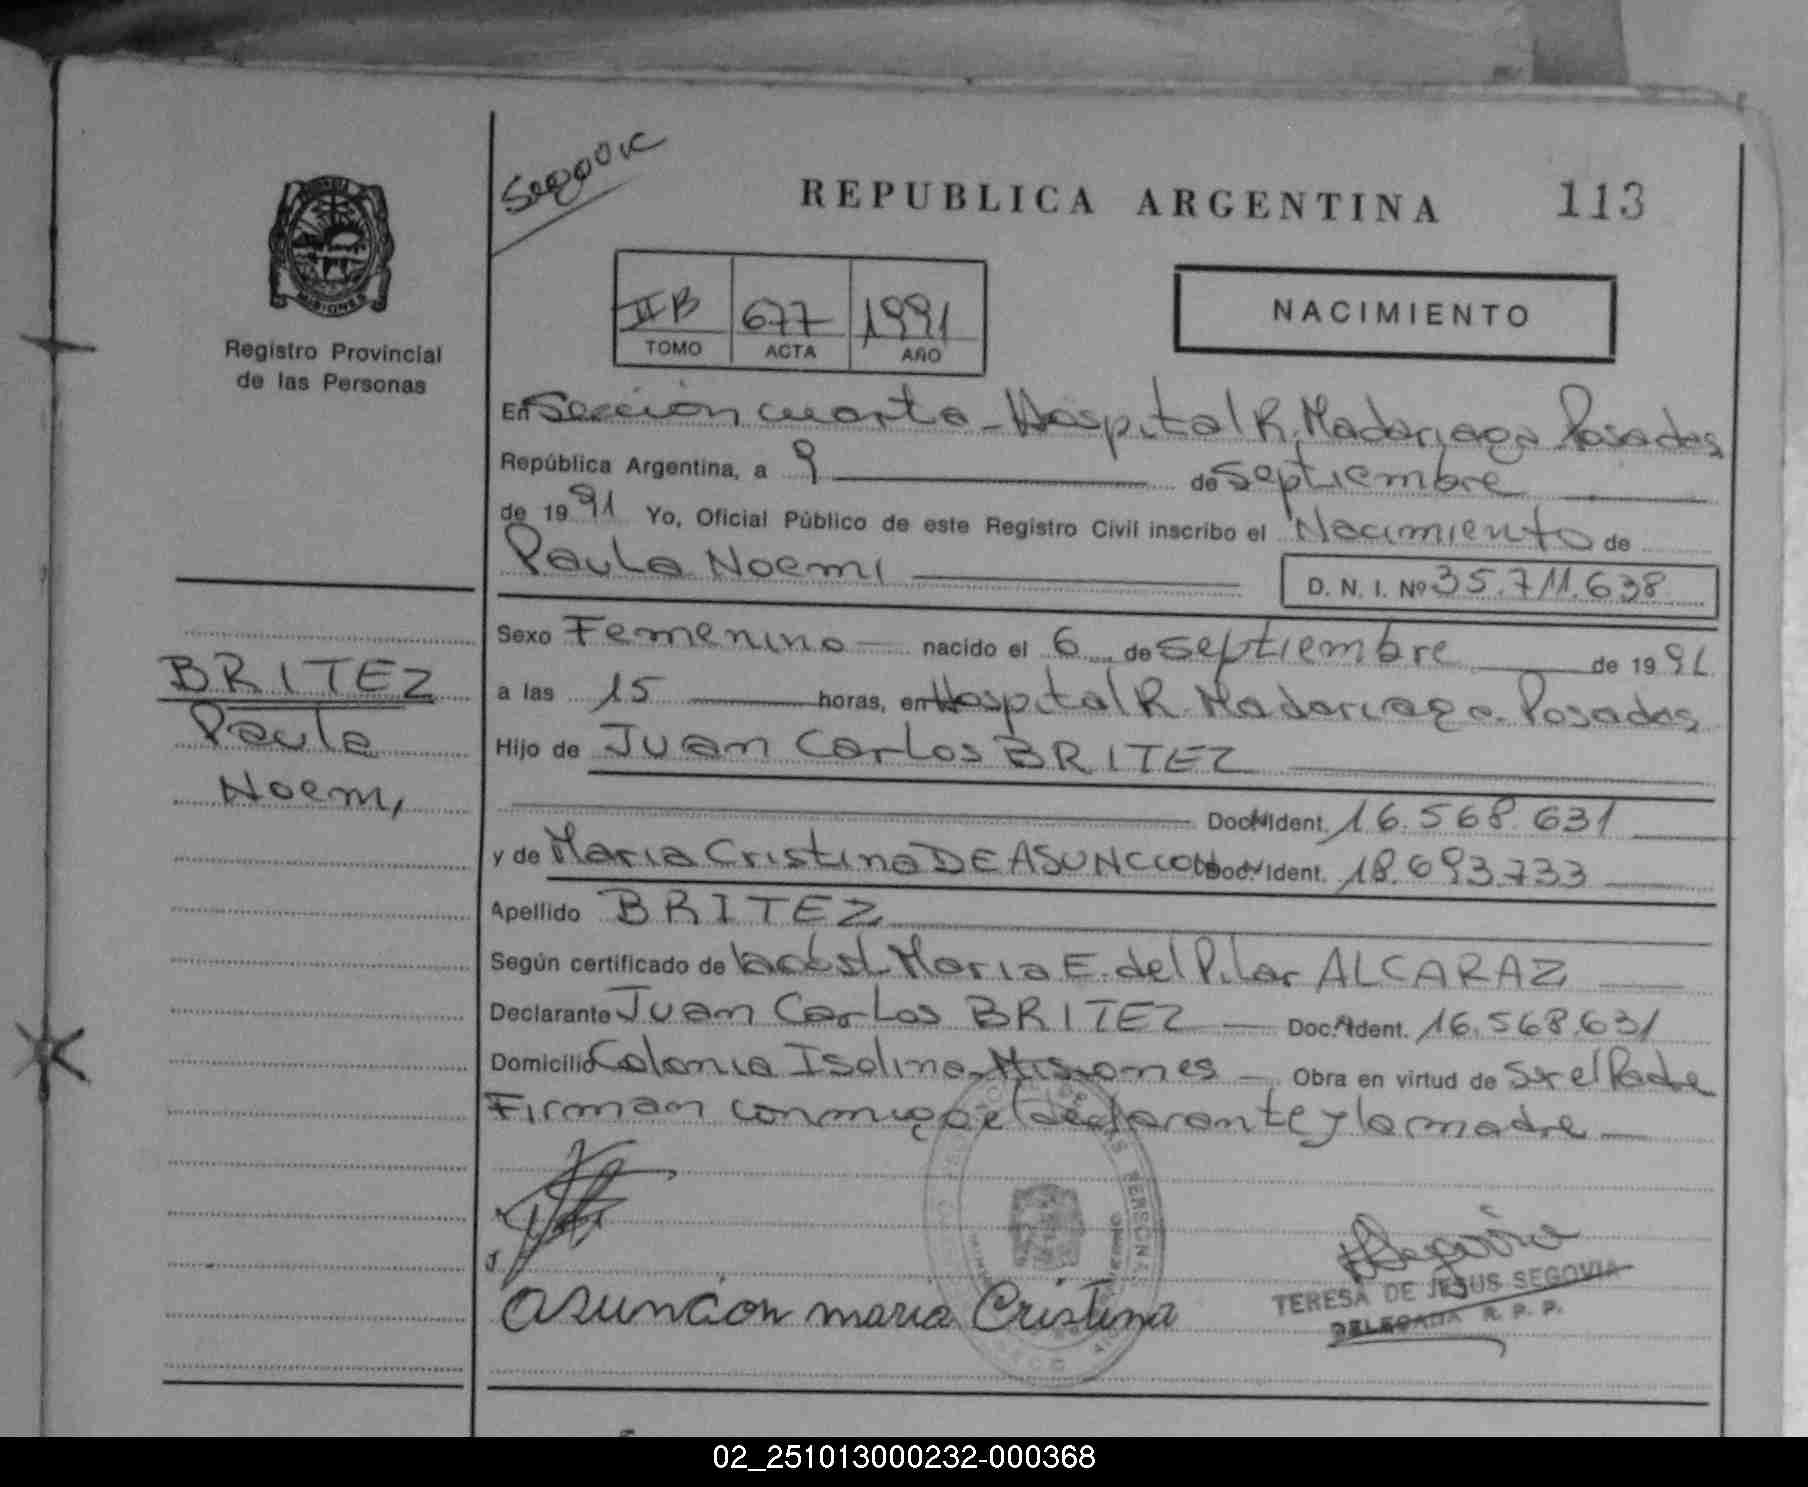 Segovia
REPUBLICA ARGENTINA 113
MISIONES
Registro Provincial
de las Personas
II B 677 1991
TOMO ACTA AÑO
NACIMIENTO
En Sección cuarta - Hospital R. Madariaga Posadas
República Argentina, a 9 de Septiembre
de 1991 Yo, Oficial Público de este Registro Civil inscribo el Nacimiento de
Paula Noemi D. N. I. Nº 35.711.638
Sexo Femenino nacido el 6 de Septiembre de 1991
BRITEZ
Paula
Noemi
a las 15 horas, en Hospital R. Madariaga. Posadas
Hijo de Juan Carlos BRITEZ
Doc. Ident. 16.568.631
y de Maria Cristina DE ASUNCION Doc. Ident. 18.693.733
Apellido BRITEZ
Según certificado de Maria E. del Pilar ALCARAZ
Declarante Juan Carlos BRITEZ Doc. Ident. 16.568.631
Domicilio Colonia Isolina - Misiones Obra en virtud de Ser el Padre
Firman conmigo el declarante y la madre
asunción maria Cristina
Segovia
TERESA DE JESUS SEGOVIA
DELEGADA R. P. P.
02_251013000232-000368